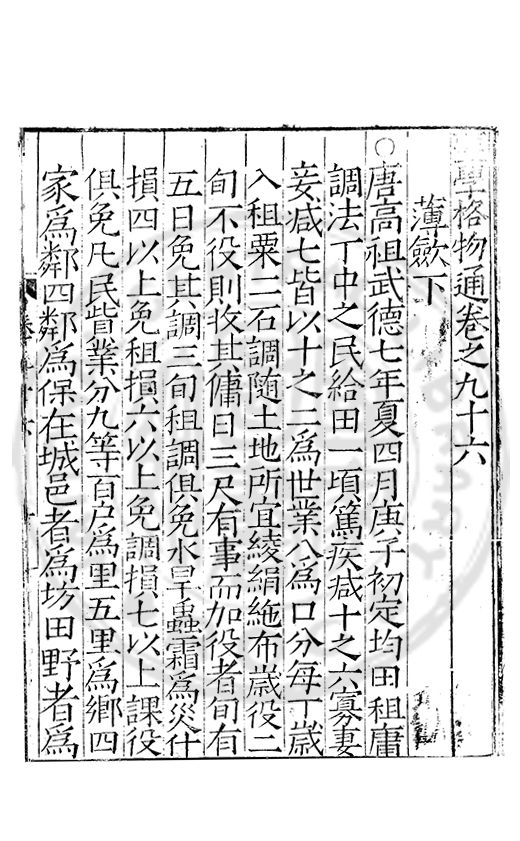 學格物通卷之九十六
薄斂下
○唐高祖武德七年夏四月庚子初定均田租庸
調法丁中之民給田一頃篤疾减十之六寡妻
妾减七皆以十之二為世業八為口分每丁歲
入租粟二石調隨土地所宜綾絹絁布歲役二
旬不役則收其傭日三尺有事而加役者旬有
五日免其調三旬租調俱免水旱蟲霜為災什
損四以上免租損六以上免調損七以上課役
俱免凡民貲業分九等百户為里五里為鄉四
家為鄰四鄰為保在城邑者為坊田野者為